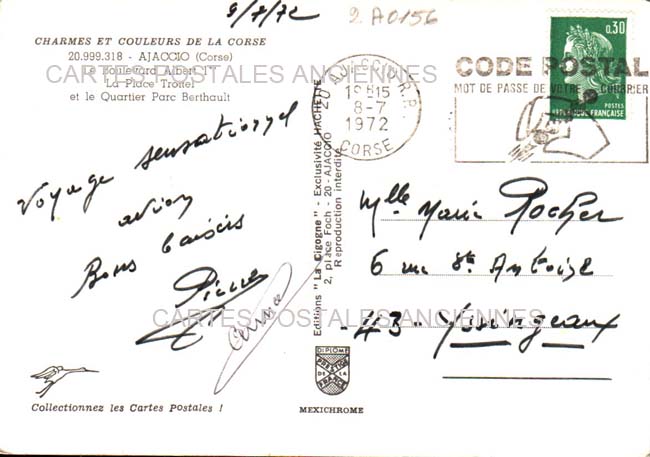 2 A0156
CHARMES ET COULEURS DE LA CORSE
20.999.318 - AJACCIO (Corse)
Le Boulevard Albert 1
La Place Trottel
et le Quartier Parc Berthault
CARTES POSTALES ANCIENNES
20 AJACCIO R.P.
18H15
8-7
1972
CORSE
0,30
POSTES
REPUBLIQUE FRANÇAISE
CODE POSTAL
MOT DE PASSE DE VOTRE COURRIER
Voyage sensationnel
avion
Bons baisers
Pierre
Editions "La Cigogne" - Exclusivité HACHETTE
2, place Foch - 20 - AJACCIO
Reproduction interdite
Mlle Marie Rocher
6 rue St Antoine
43 - Yssingeaux
CARTES POSTALES ANCIENNES
DIPLOME
PRESTIGE
DE LA
FRANCE
Collectionnez les Cartes Postales !
MEXICHROME